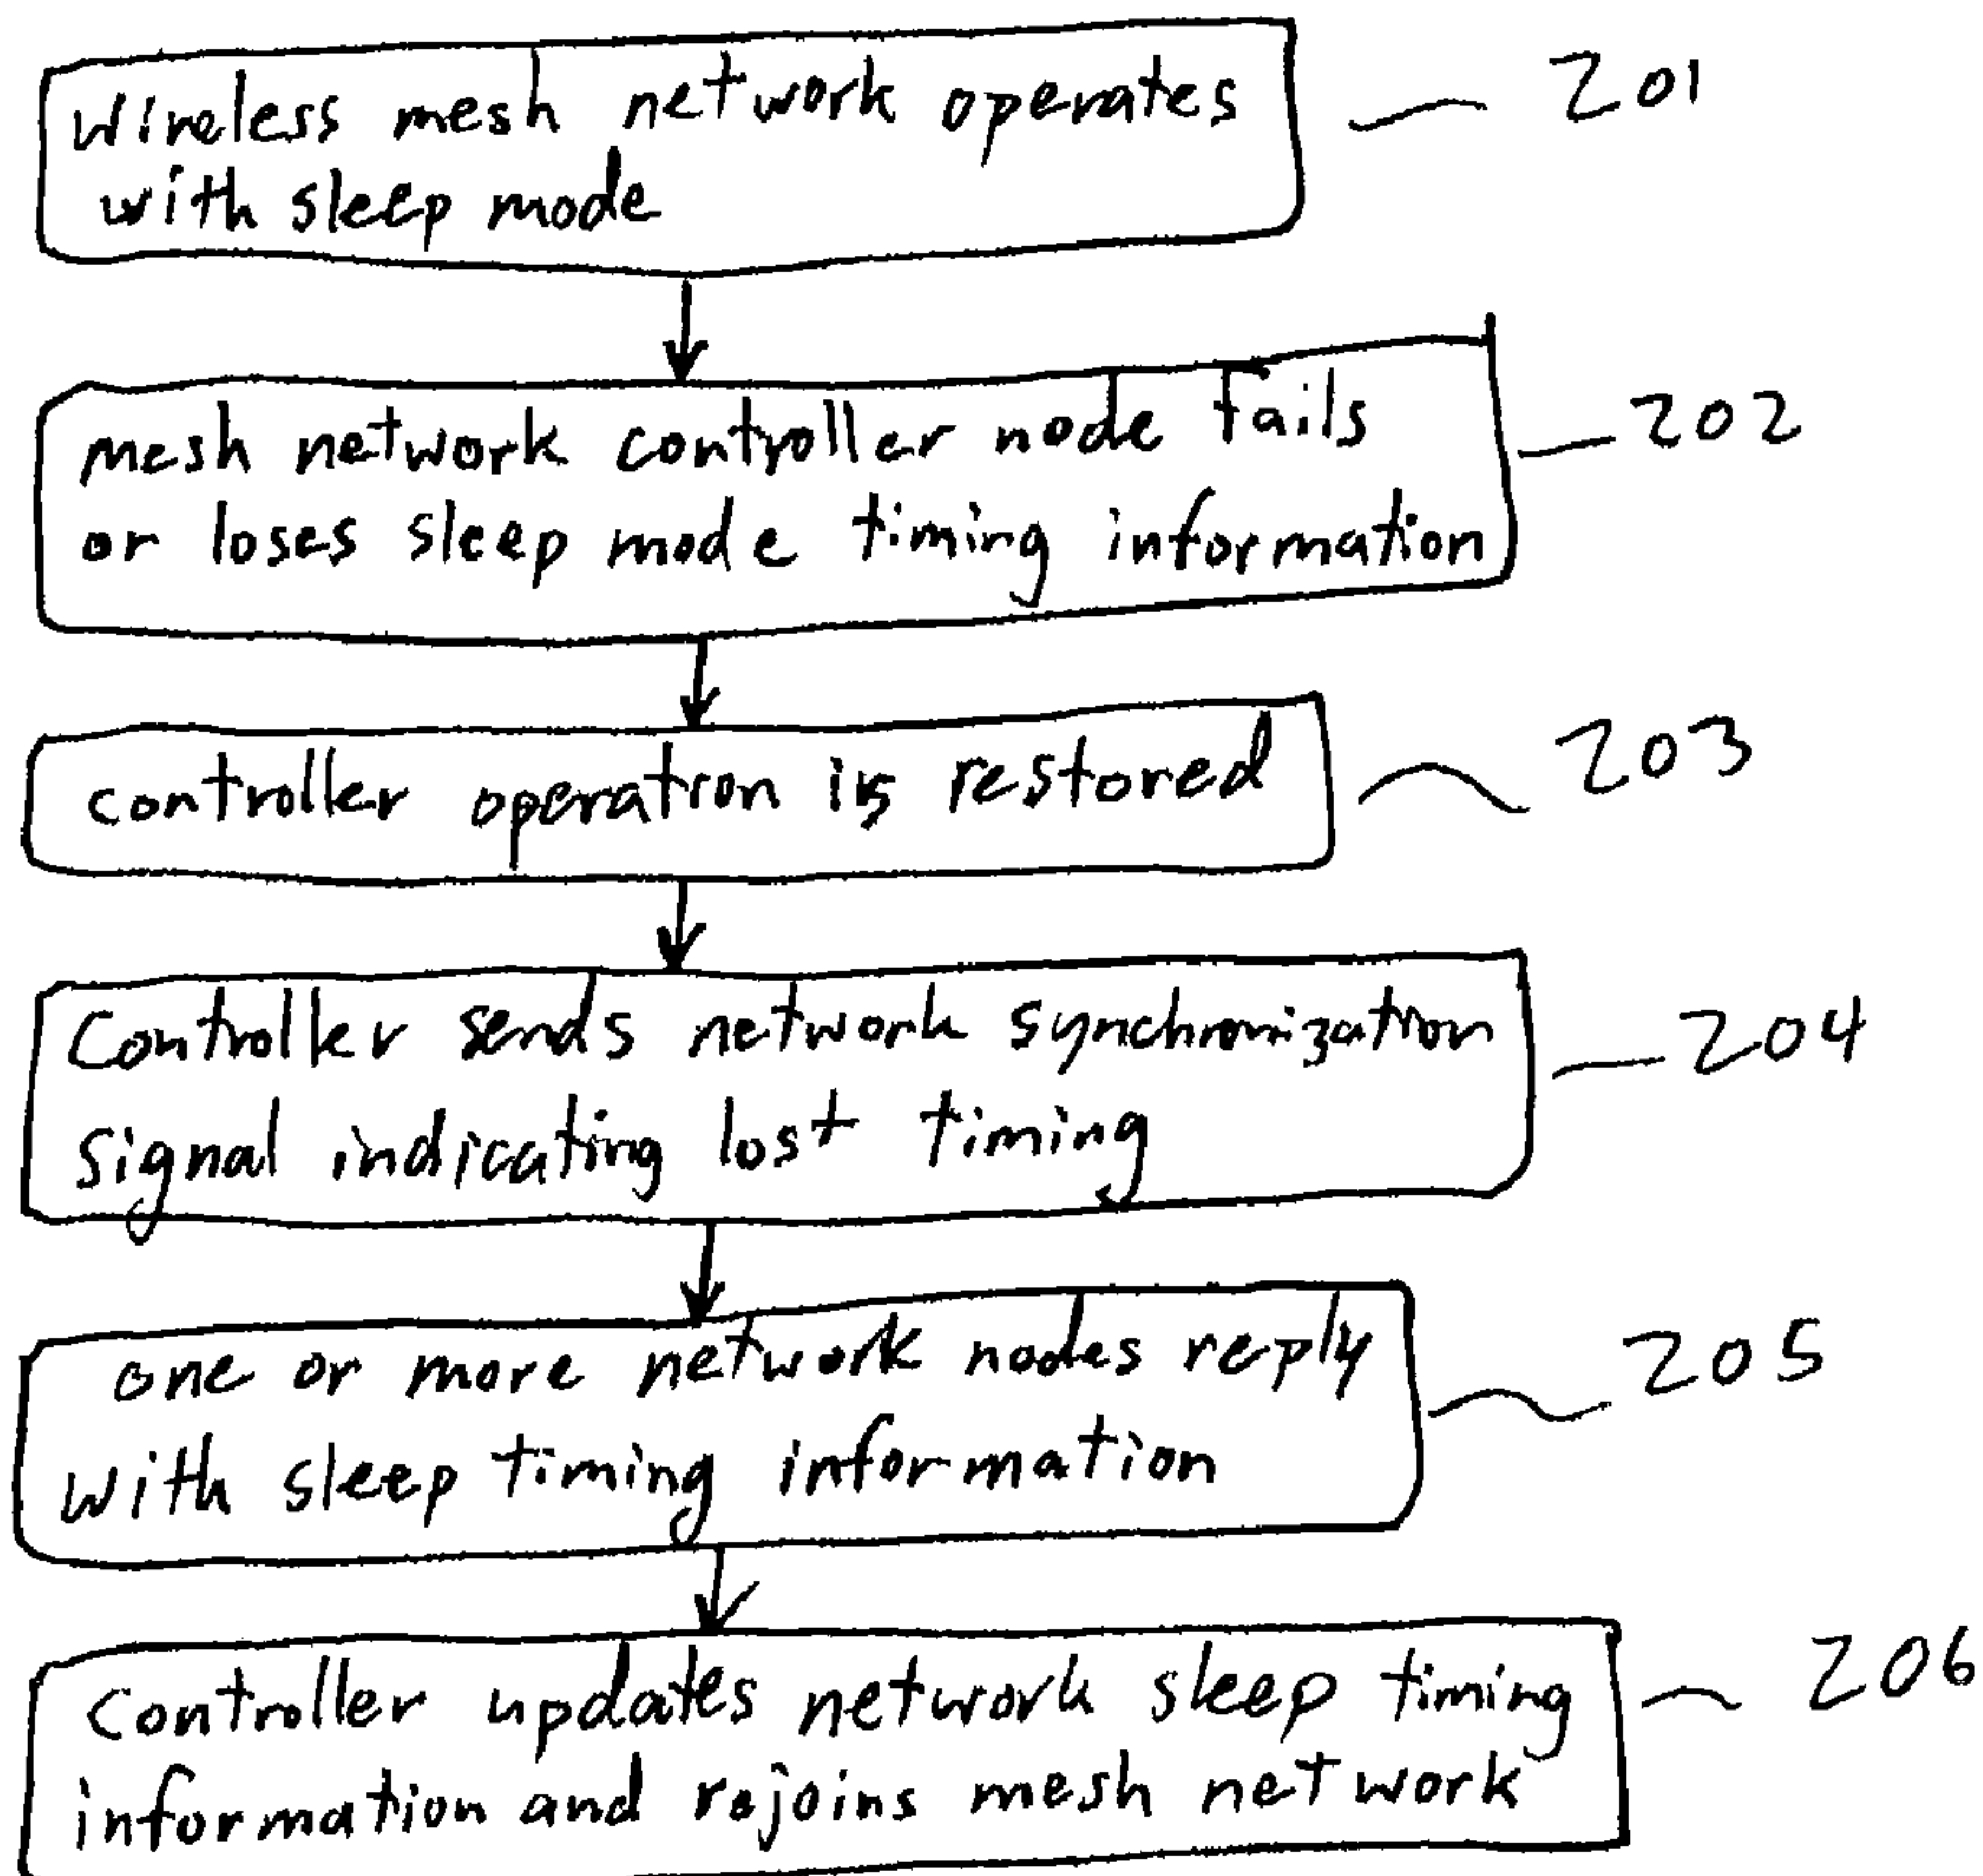 Wireless mesh network operates 201
with sleep mode
mesh network controller node fails 202
or loses sleep mode timing information
controller operation is restored 203
Controller sends network synchronization 204
signal indicating lost timing
one or more network nodes reply 205
with sleep timing information
controller updates network sleep timing 206
information and rejoins mesh network